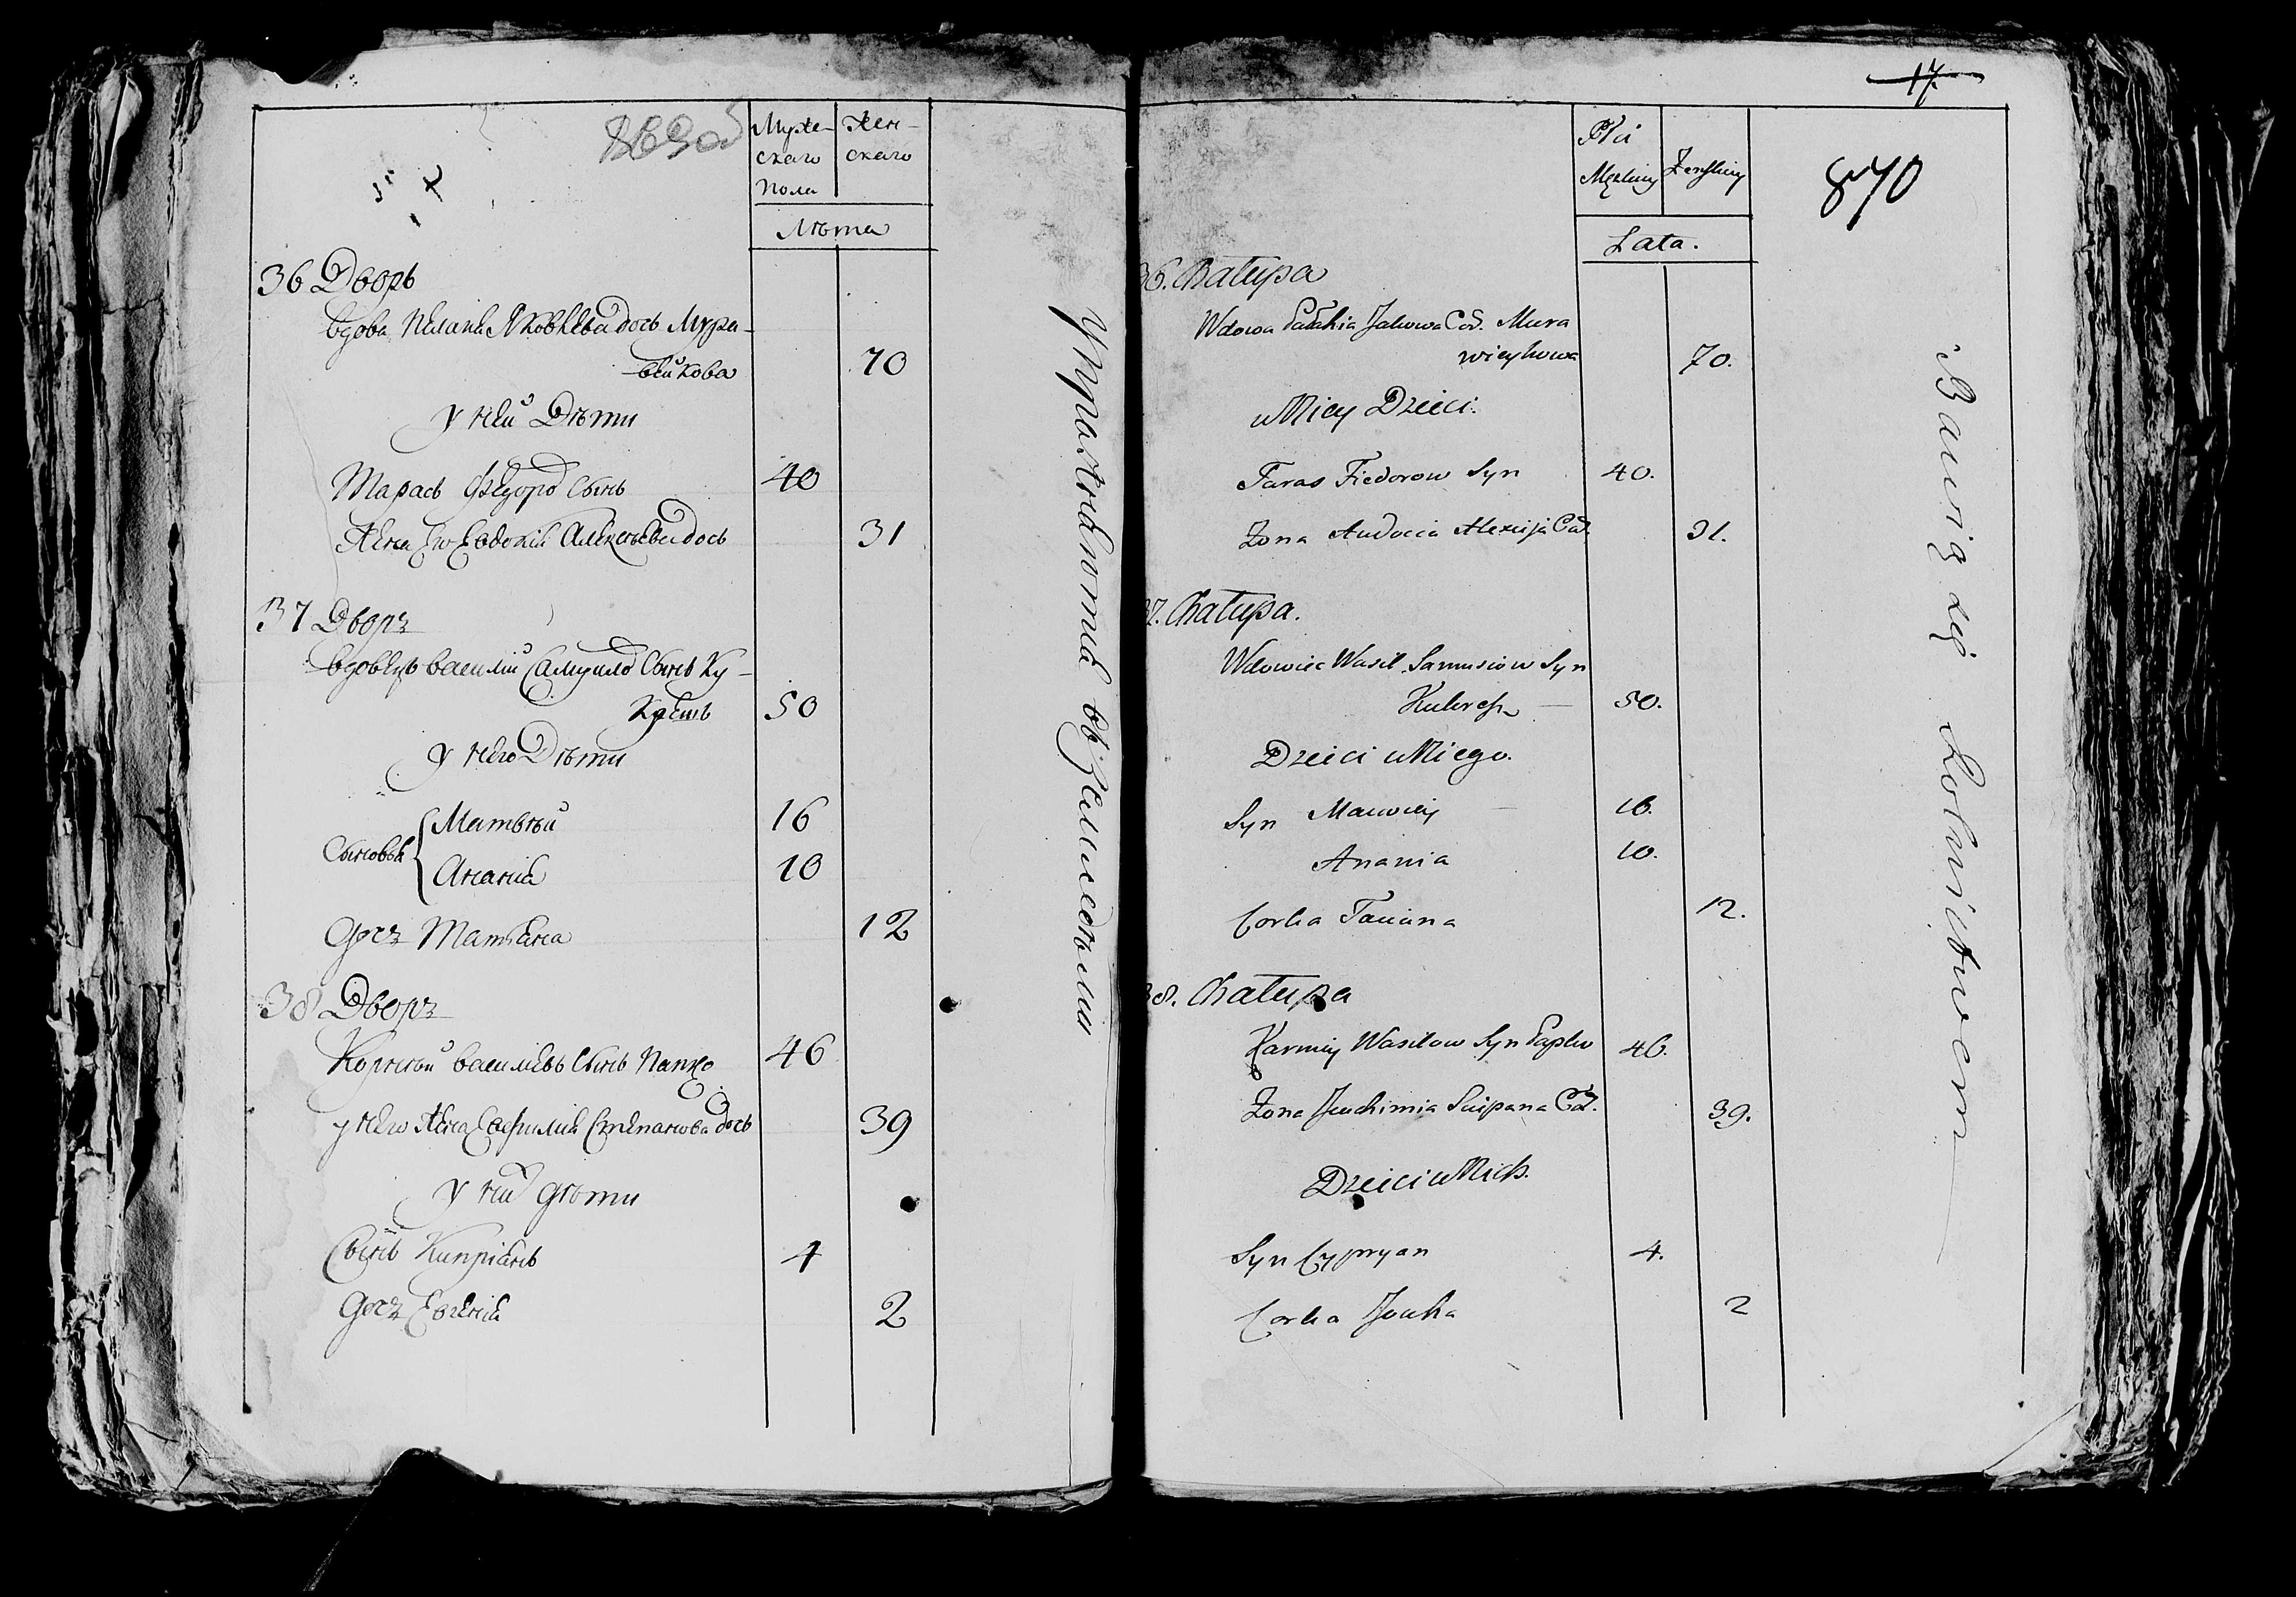 869 об
Муже-
скаго
Пола
Жен-
скаго
Лѣта
36 Дворъ
вдова Пелагія Яковлева дочь Мура-
вейкова 70
у ней Дѣти
Тарасъ Федоров Сынъ 40
Жена Его Евдокія Алексеева дочь 31
37 Дворъ
вдовецъ василій Самуилов Сынъ Ку-
крешъ 50
у него Дѣти
Сыновья
Матвѣй 16
Ананія 10
дочь Татьяна 12
38 Дворъ
Корнѣй василіевъ Сынъ Папко 46
у него Жена Евфимія Степанова дочь 39
у них дѣти
Сынъ Кипріянъ 4
дочь Евгенія 2
Упражняются въ Земледѣліи
17
870
Płci
Męzkiey
Zeńskiey
Lata.
36. Chałupa
Wdowa Pałahia Jakowa Cór. Mura
wieykowa 70.
u Niey Dzieci.
Taras Fiedorow Syn 40.
Zona Audocia Alexieja Cór. 31.
37. Chałupa.
Wdowiec Wasil Samusiow Syn
Kukresz 50.
Dzieci u Niego.
Syn Maciey 16.
Anania 10.
Corka Taciana 12.
38. Chałupa
Karniey Wasilow Syn Papko 46.
Zona Jeuchimia Sciepana Cór. 39.
Dzieci u Nich.
Syn Cypryan 4.
Corka Jeuka 2
Bawią się Rolnictwem